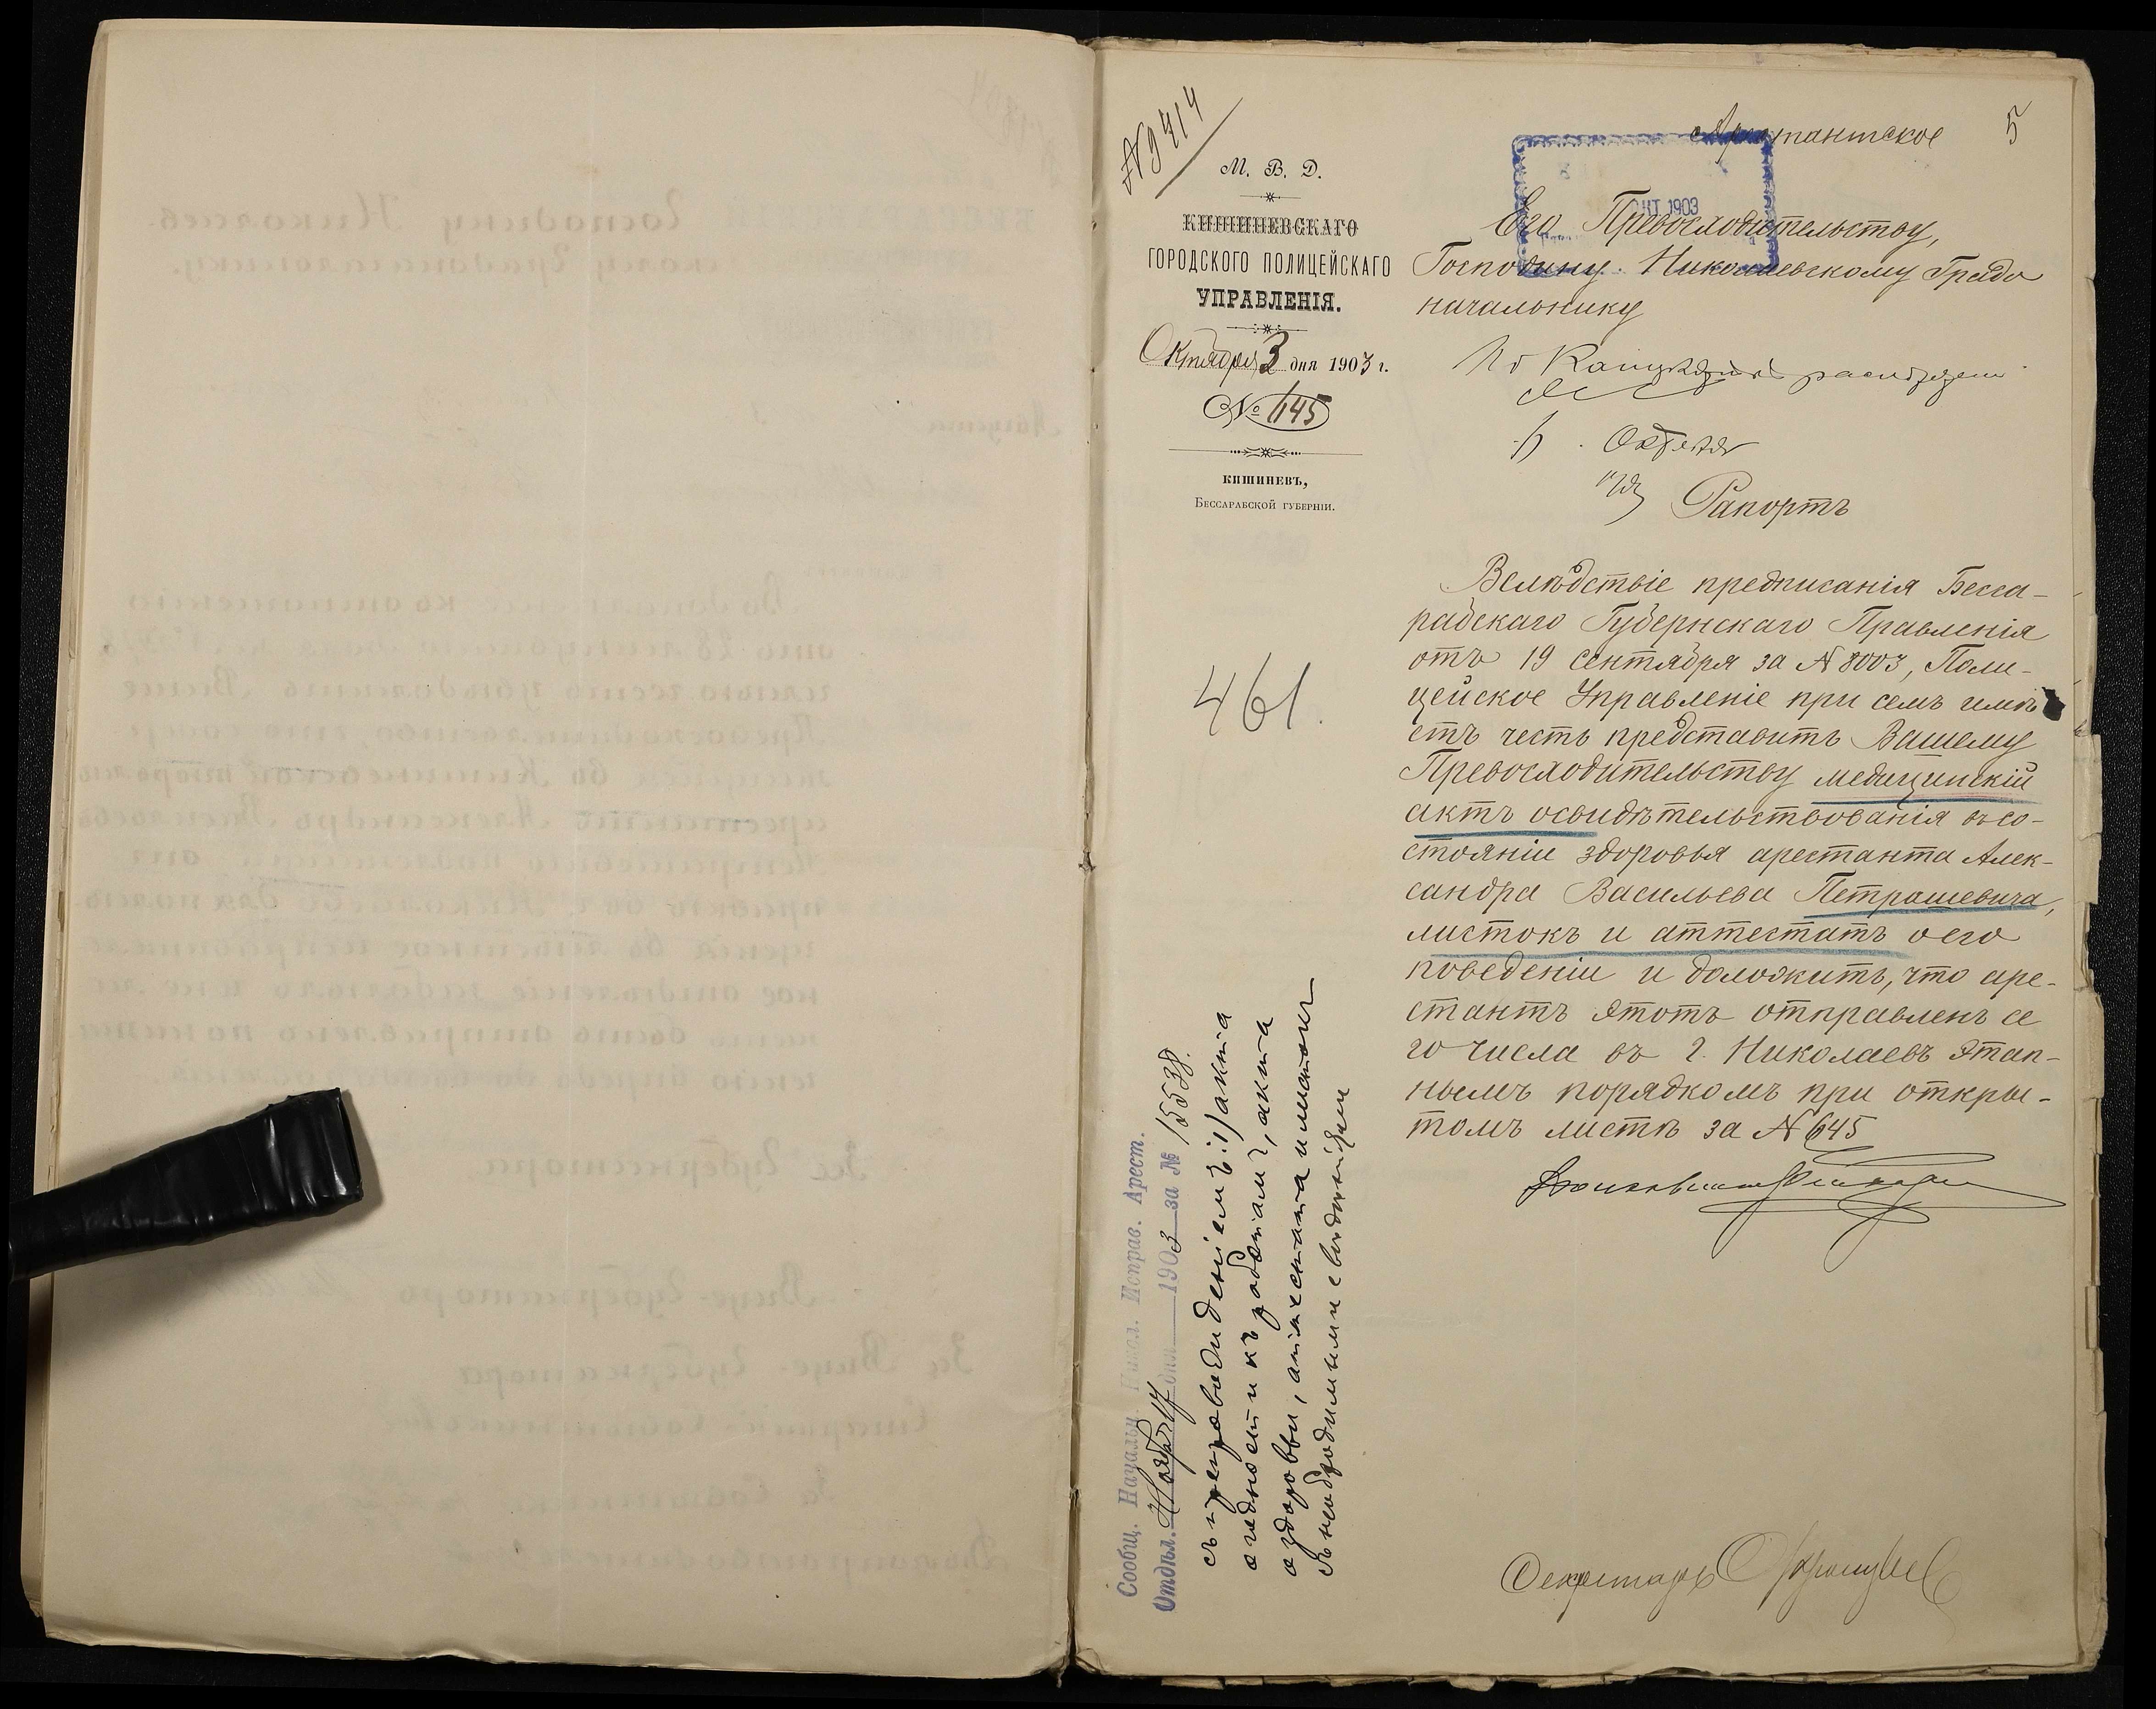 № 9414
М. В. Д.
КИШИНЕВСКАГО
ГОРОДСКОГО ПОЛИЦЕЙСКАГО
УПРАВЛЕНІЯ.
Октября 3 дня 1903 г.
№ 645
КИШИНЕВЪ,
БЕССАРАБСКОЙ ГУБЕРНІИ.
461.
Арестантское
5
ОКТ 1903
Его Превосходительству,
Господину Николаевскому Градо
начальнику
Октября
Рапортъ
Вслѣдствіе предписанія Бесса-
рабскаго Губернскаго Правленія
отъ 19 сентября за № 8003, Поли-
цейское Управленіе при семъ имѣ
етъ честь представить Вашему
Превосходительству медицинскій
актъ освидѣтельствованія въ со-
стояніи здоровья арестанта Алек-
сандра Васильева Петрашевича,
листокъ и аттестатъ о его
поведеніи и доложить, что аре-
стантъ этотъ отправленъ се
го числа въ г. Николаевъ этап-
нымъ порядкомъ при откры-
томъ листѣ за № 645
Секретарь
Сообщ. Начальн. Никол. Исправ. Арест.
Отдѣл. Ноября 17 дня 1903 за № 15538.
съ препровожденіемъ: 1) акта
о годности къ работамъ, акта
о здоровьи, аттестата и листокъ